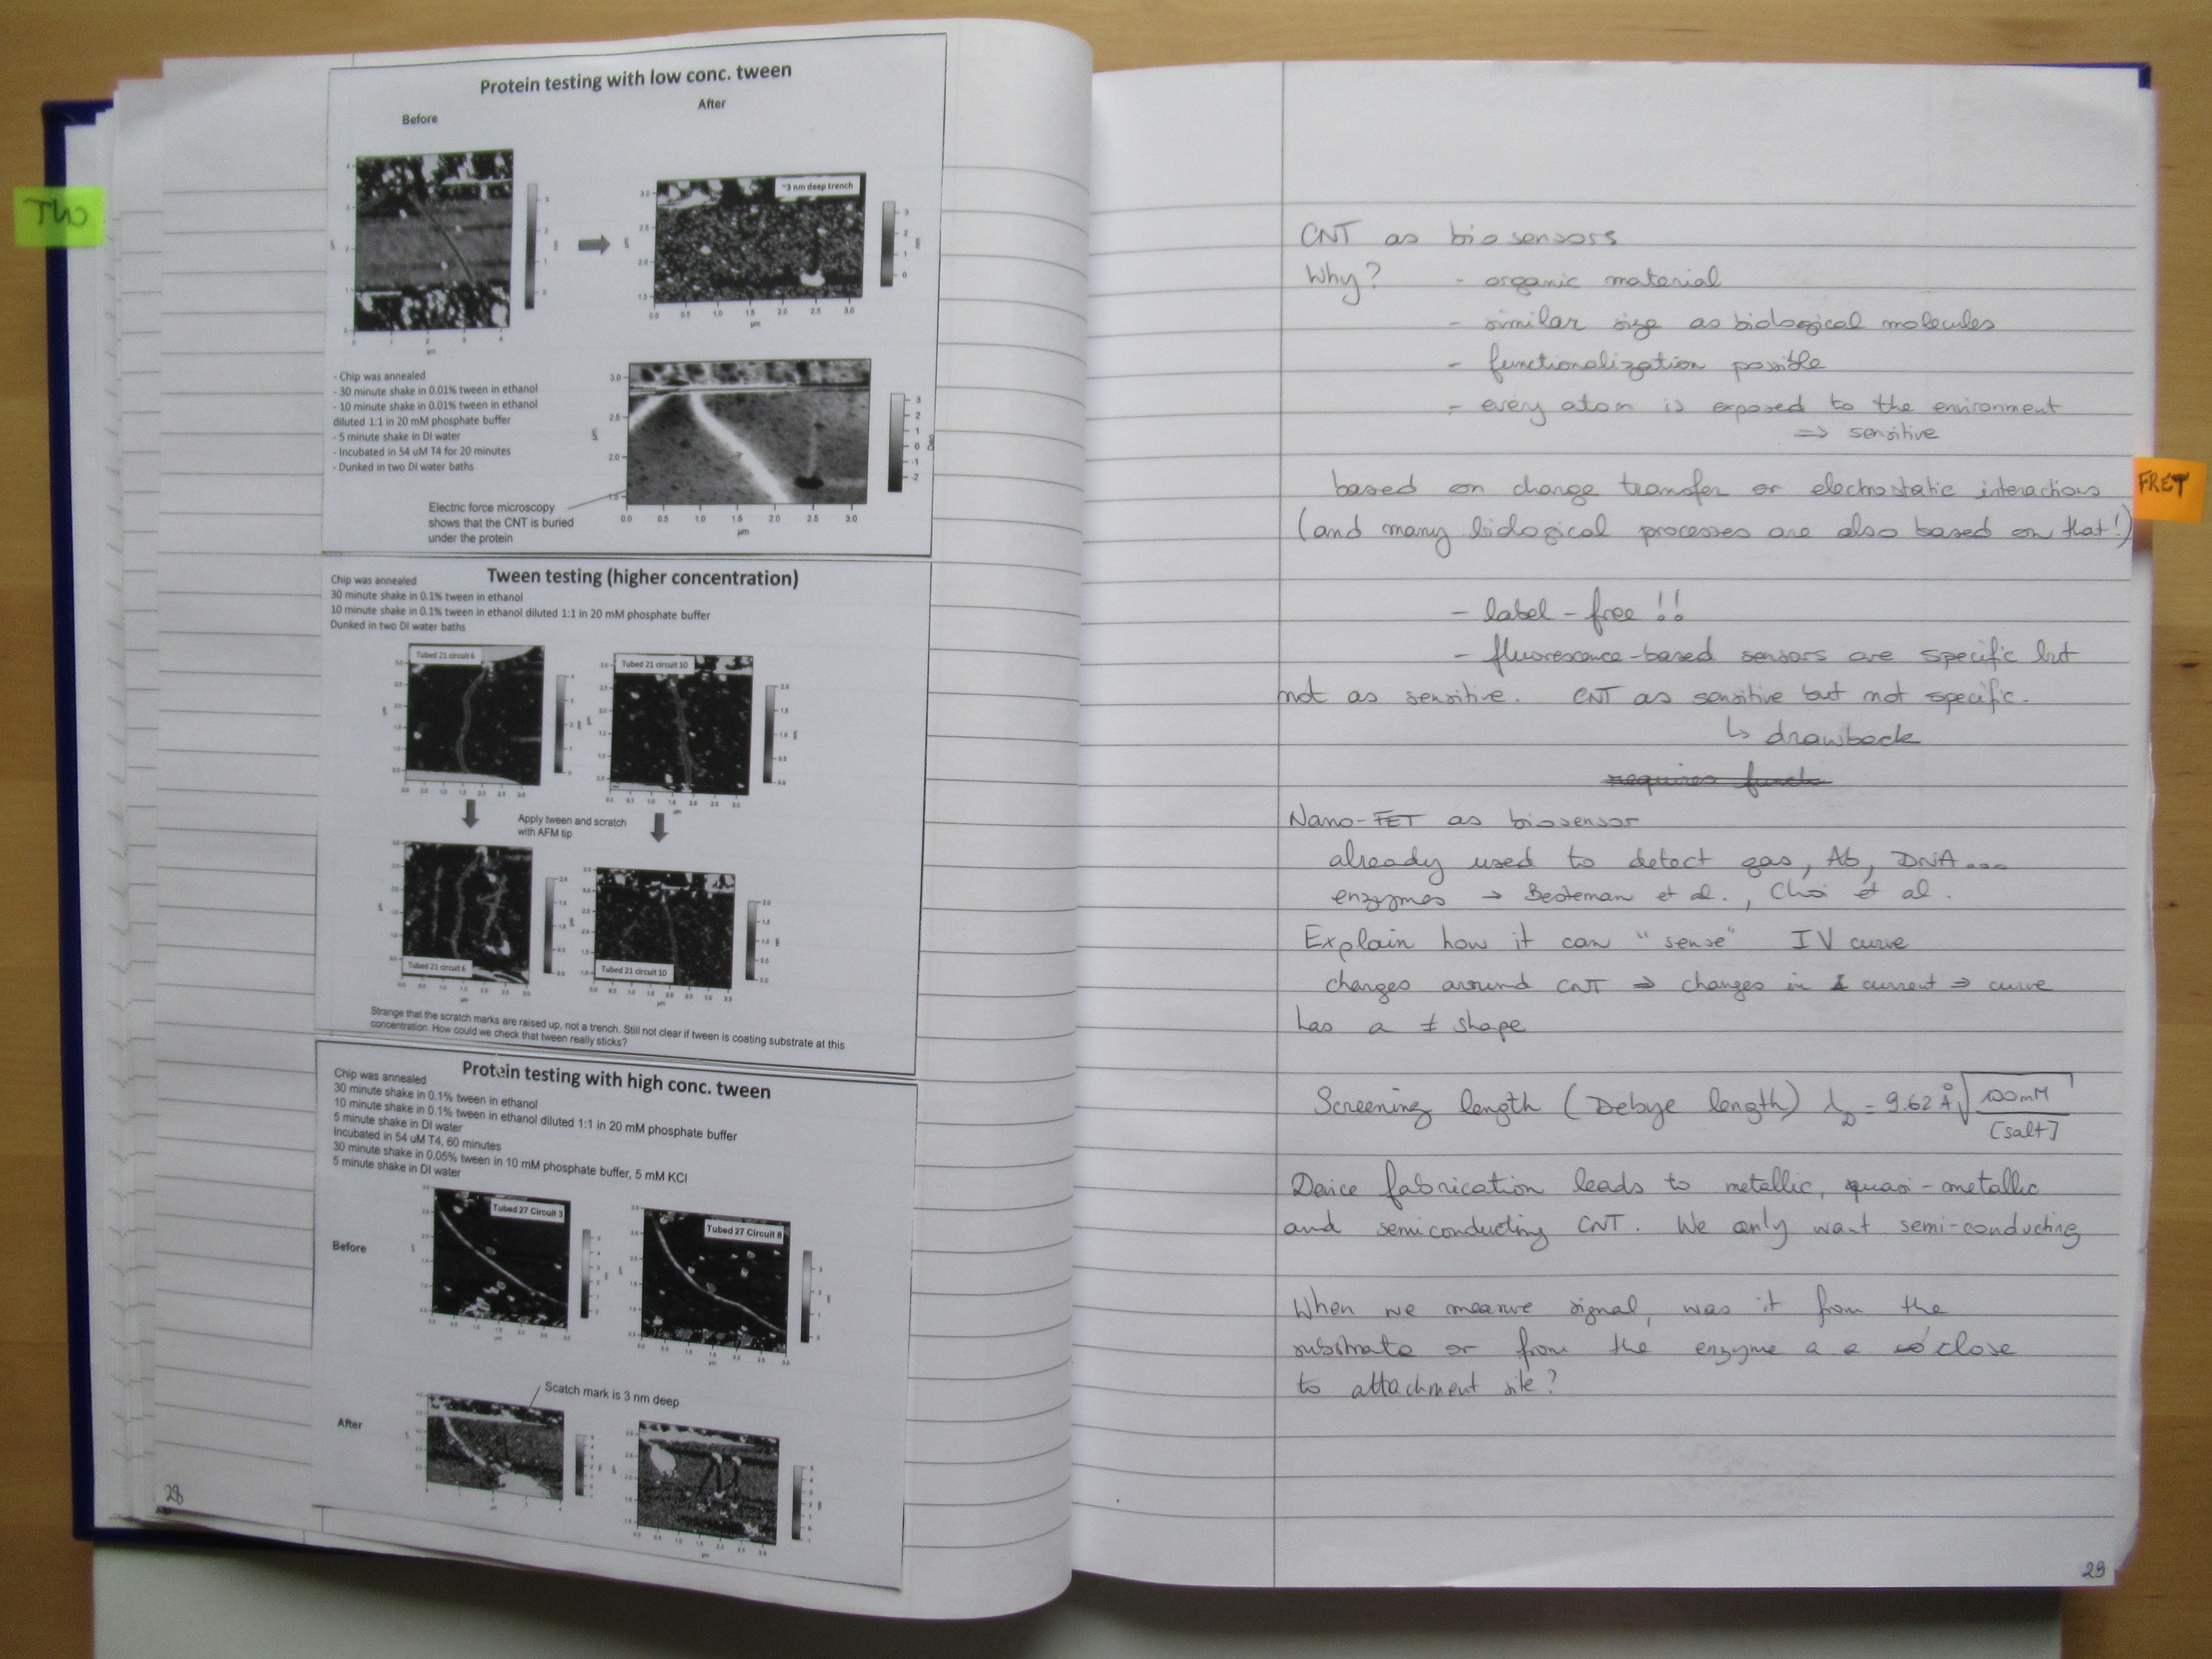 TW
Protein testing with low conc. tween
Before
After
~3 nm deep trench
- Chip was annealed
- 30 minute shake in 0.01% tween in ethanol
- 10 minute shake in 0.01% tween in ethanol
diluted 1:1 in 20 mM phosphate buffer
- 5 minute shake in DI water
- Incubated in 54 uM T4 for 20 minutes
- Dunked in two DI water baths
Electric force microscopy
shows that the CNT is buried
under the protein
Tween testing (higher concentration)
Chip was annealed
30 minute shake in 0.1% tween in ethanol
10 minute shake in 0.1% tween in ethanol diluted 1:1 in 20 mM phosphate buffer
Dunked in two DI water baths
Tubed 21 circuit 6
Tubed 21 circuit 10
Apply tween and scratch
with AFM tip
Tubed 21 circuit 6
Tubed 21 circuit 10
Strange that the scratch marks are raised up, not a trench. Still not clear if tween is coating substrate at this
concentration. How could we check that tween really sticks?
Protein testing with high conc. tween
Chip was annealed
30 minute shake in 0.1% tween in ethanol
10 minute shake in 0.1% tween in ethanol diluted 1:1 in 20 mM phosphate buffer
5 minute shake in DI water
Incubated in 54 uM T4, 60 minutes
30 minute shake in 0.05% tween in 10 mM phosphate buffer, 5 mM KCl
5 minute shake in DI water
Before
Tubed 27 Circuit 3
Tubed 27 Circuit 8
Scatch mark is 3 nm deep
After
28
CNT as biosensors
Why? - organic material
- similar size as biological molecules
- functionalization possible
- every atom is exposed to the environment
⇒ sensitive
based on charge transfer or electrostatic interactions
(and many biological processes are also based on that!)
FRET
- label-free !!
- fluorescence-based sensors are specific but
not as sensitive. CNT as sensitive but not specific.
↳ drawback
requires funct
Nano-FET as biosensor
already used to detect gas, Ab, DNA...
enzymes → Besteman et al., Choi et al.
Explain how it can "sense" IV curve
changes around CNT ⇒ changes in I current ⇒ curve
has a ≠ shape
Screening length (Debye length) λD = 9.62 Å √(100mM / [salt])
Device fabrication leads to metallic, quasi-metallic
and semiconducting CNT. We only want semi-conducting
When we measure signal, was it from the
substrate or from the enzyme a.a. close
to attachment site?
29